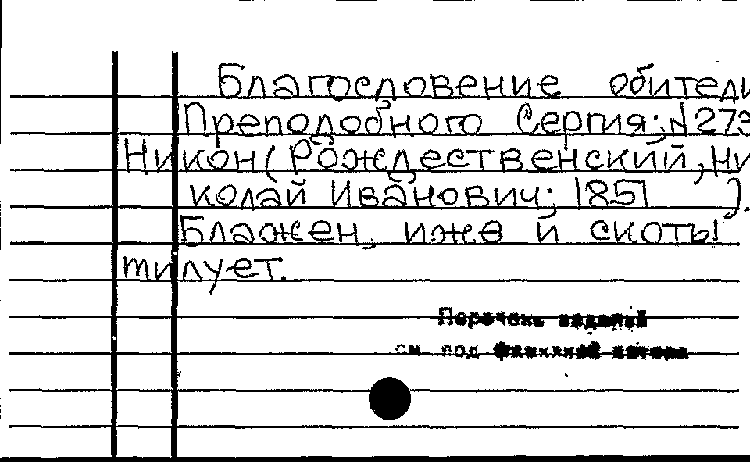 Благословение обители
Преподобного Сергия; № 273
Никон (Рождественский, Ни
колай Иванович; 1851 ).
Блажен, иже и скоты
милует.
Перечень изданий
см. под фамилией автора